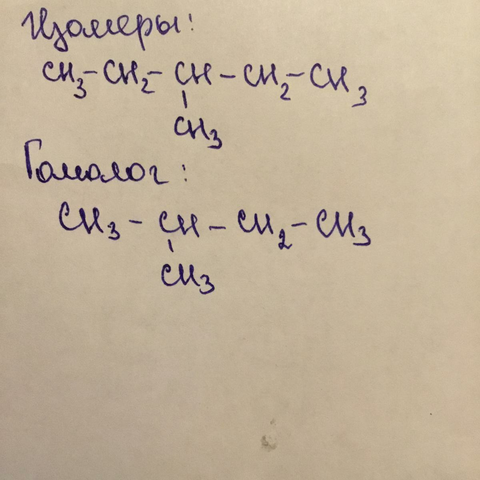 Изомеры:
CH₃-CH₂-CH-CH₂-CH₃
CH₃
Гомолог:
CH₃-CH-CH₂-CH₃
CH₃